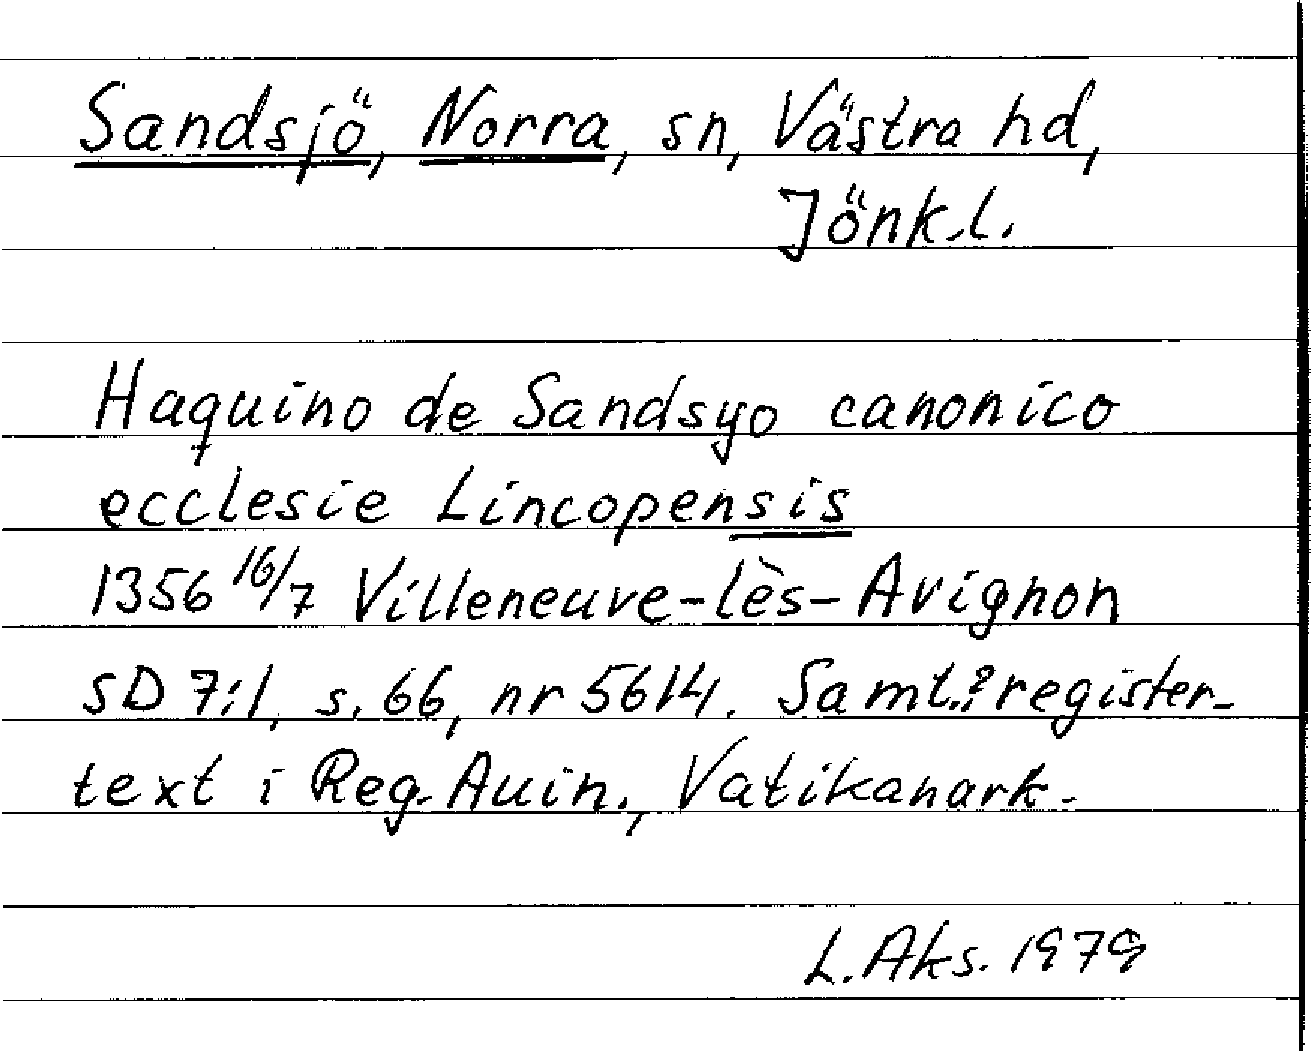 Sandsjö, Norra, sn, Västra hd,
Jönk.l.
Haquino de Sandsyo canonico
ecclesie Lincopensis
1356 16/7 Villeneuve-lès-Avignon
SD 7:1, s. 66, nr 5614. Samt.? register-
text i Reg. Auin., Vatikanark.
L. Aks. 1979